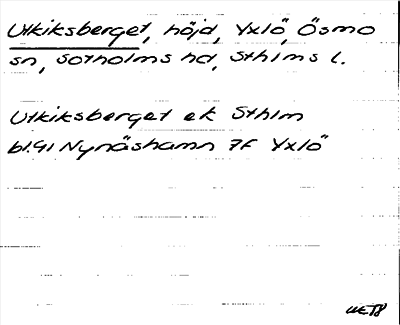 Utkiksberget, höjd, Yxlö, Ösmo
sn, Sotholms hd, Sthlms l.
Utkiksberget ek Sthlm
bl.91 Nynäshamn 7F Yxlö